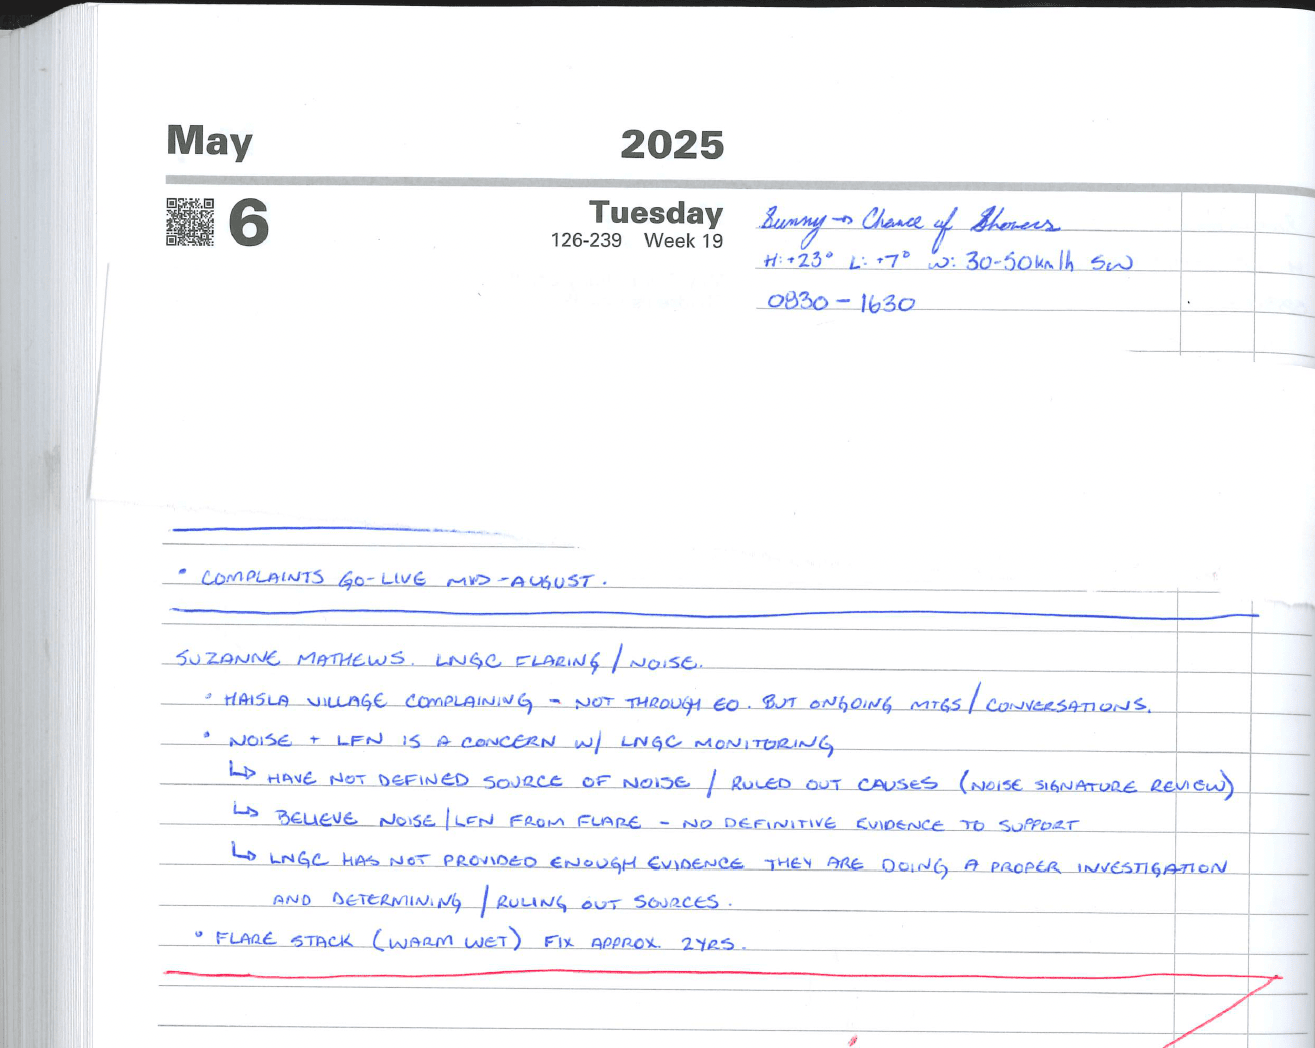 May 2025
6 Tuesday
126-239 Week 19
Sunny → Chance of Showers
H: +23° L: +7° W: 30-50km/h SW
0830 - 1630
• COMPLAINTS GO-LIVE MID-AUGUST.
SUZANNE MATHEWS. LNGC FLARING / NOISE.
• HAISLA VILLAGE COMPLAINING - NOT THROUGH EO. BUT ONGOING MTGS / CONVERSATIONS.
• NOISE + LFN IS A CONCERN W/ LNGC MONITORING
↳ HAVE NOT DEFINED SOURCE OF NOISE / RULED OUT CAUSES (NOISE SIGNATURE REVIEW)
↳ BELIEVE NOISE/LFN FROM FLARE - NO DEFINITIVE EVIDENCE TO SUPPORT
↳ LNGC HAS NOT PROVIDED ENOUGH EVIDENCE THEY ARE DOING A PROPER INVESTIGATION
AND DETERMINING / RULING OUT SOURCES.
• FLARE STACK (WARM WET) FIX APPROX. 2YRS.